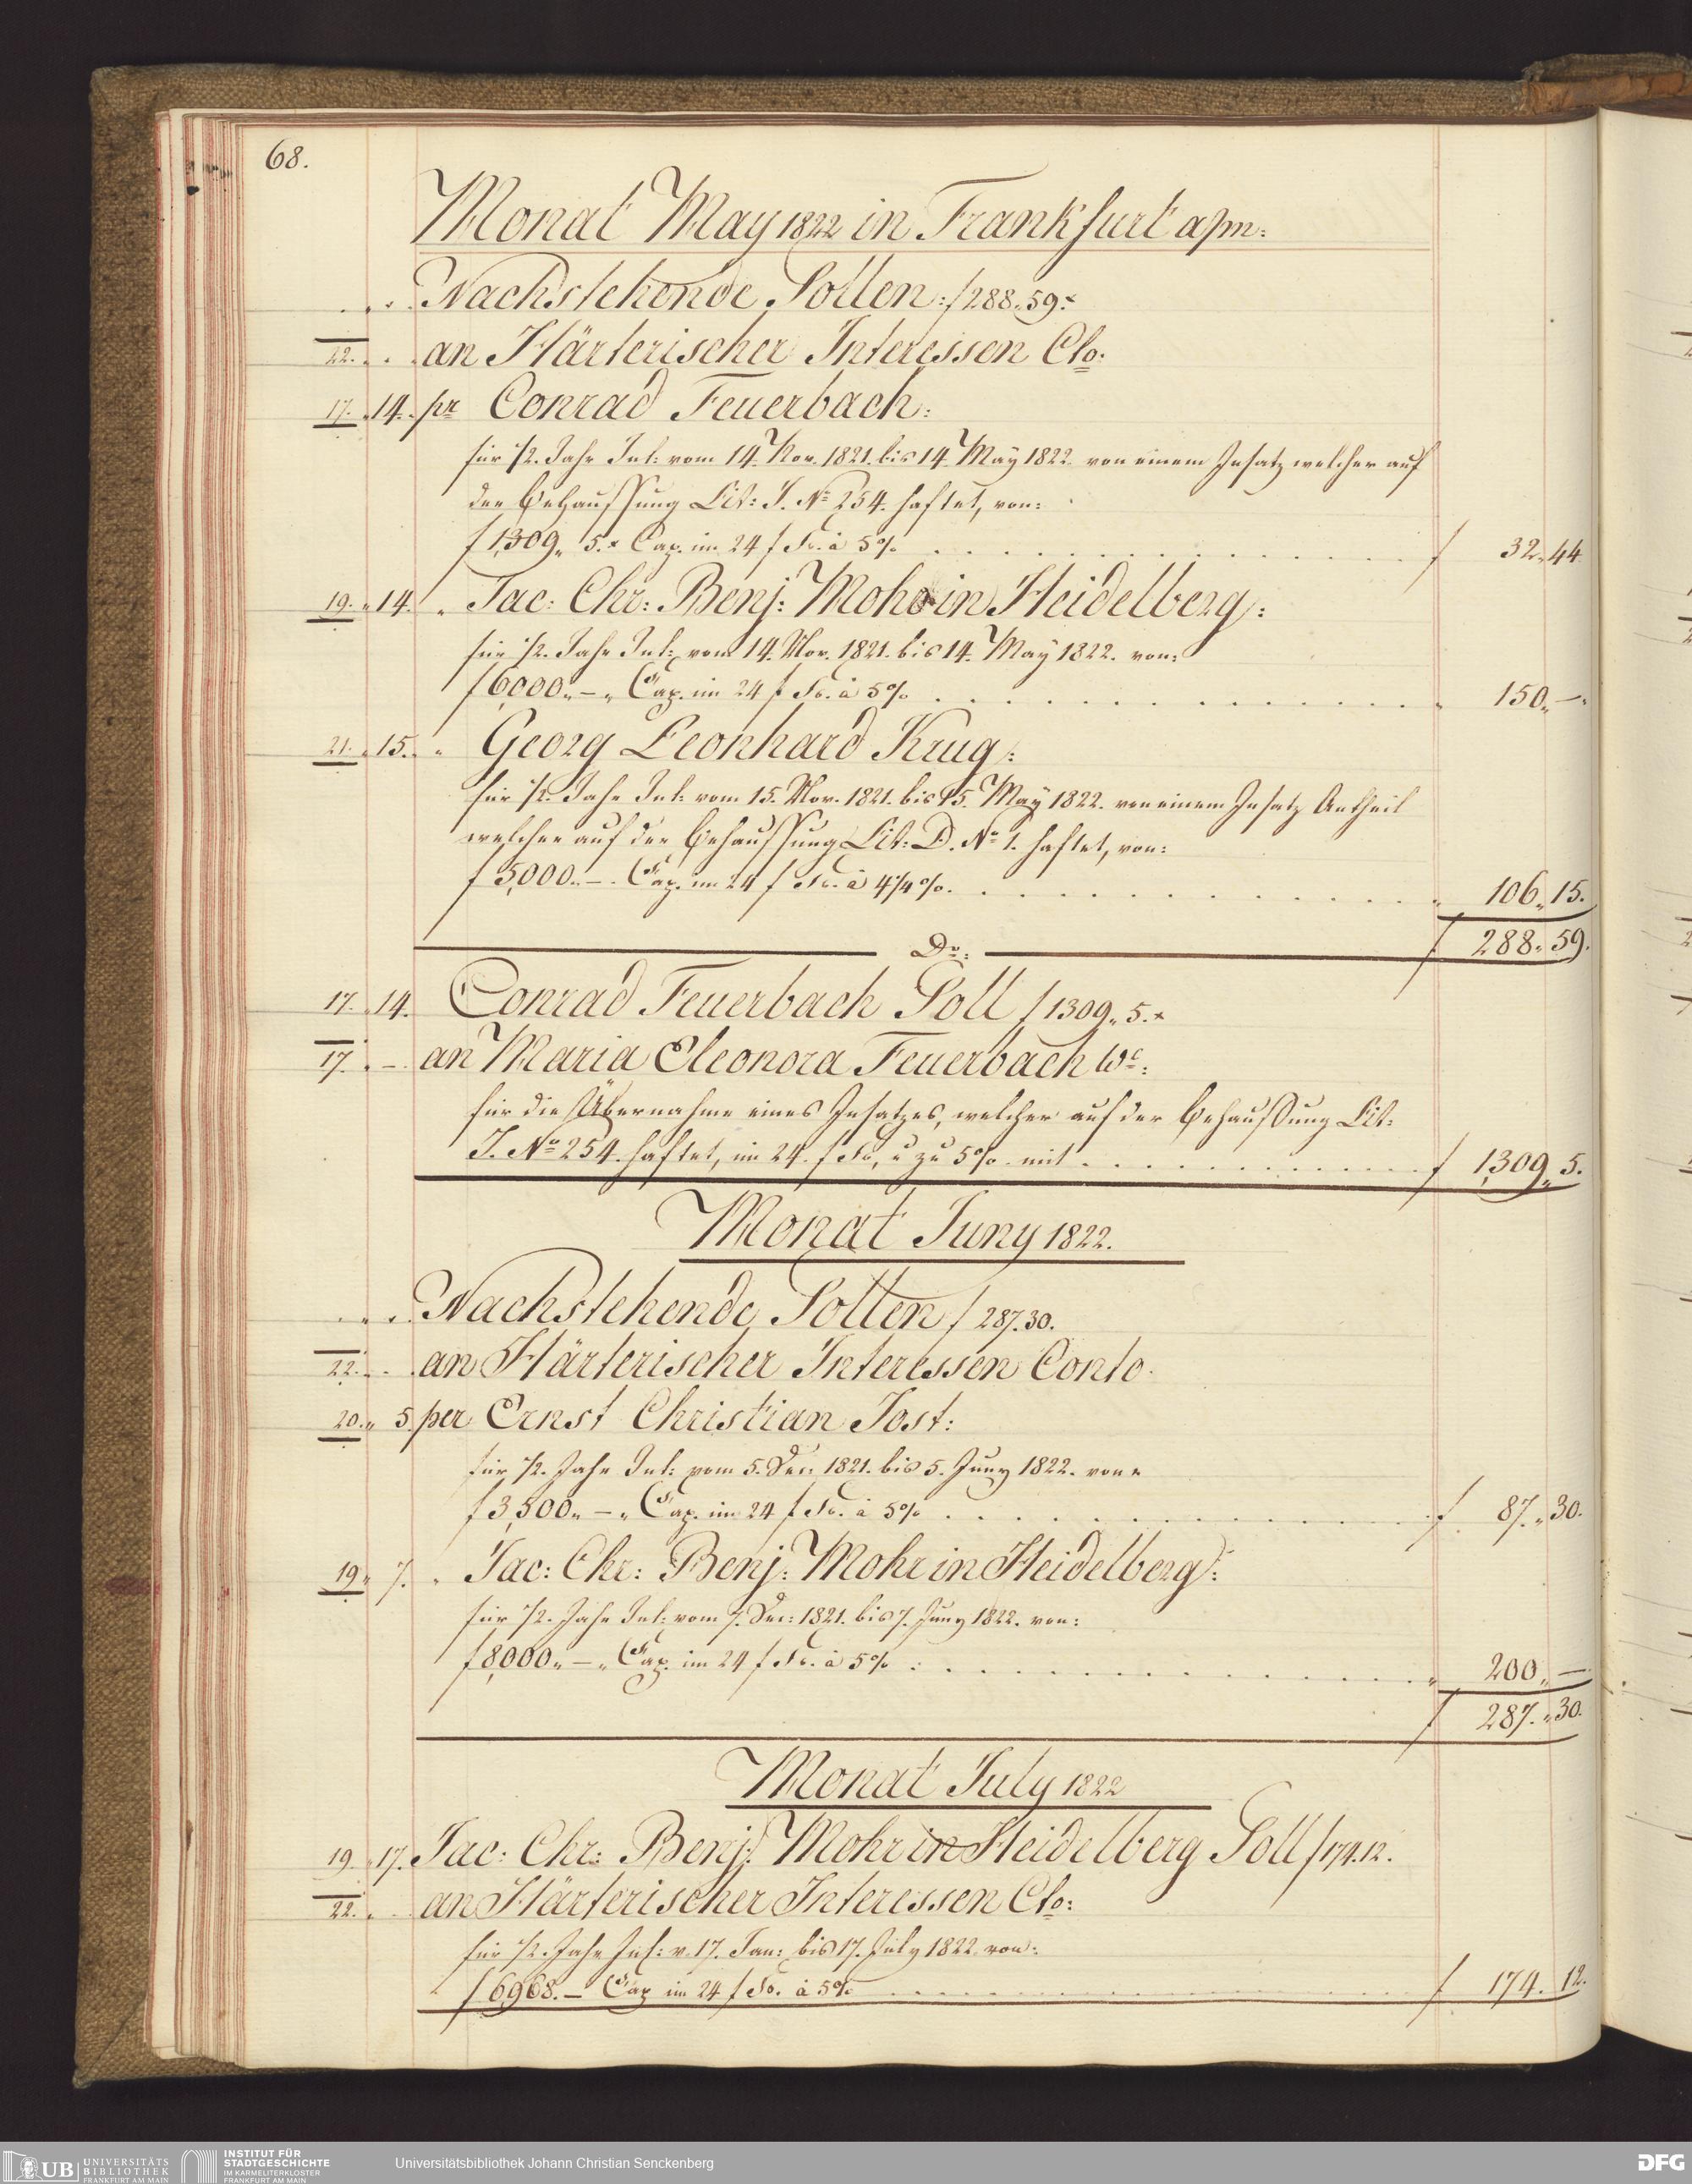 68.
Monat May 1822 in Frankfurt a/m:
Nachstehende Sollen: f 288. 59. x
22. an Härterischer Interessen Cto:
17. 14. pr Conrad Feuerbach:
für 1/2. Jahr Int: vom 14. Nov. 1821. bis 14. May 1822. von einem Insatz welcher auf
der Behaussung Lit: J. No 254. haftet, von:
f 1,309,, 5. x Cap. im 24 f Fs. à 5% f 32,, 44
19. 14. " Jac: Chr: Benj: Mohr in Heidelberg:
für 1/2. Jahr Int: vom 14. Nov. 1821. bis 14. May 1822. von:
f 6,000,, — ,, Cap. im 24 f Fs. à 5% " 150,, —.
21. 15. " Georg Leonhard Krug:
für 1/2. Jahr Int: vom 15. Nov. 1821. bis 15. May 1822. von einem Insatz Antheil
welcher auf der Behaussung Lit: D. No 1. haftet, von:
f 5,000,, — . Cap. im 24 f Fs. à 4 1/4 %. " 106,, 15.
f 288,, 59.
Do:
17. 14. Conrad Feuerbach Soll f 1309,, 5. x
17. — an Maria Eleonora Feuerbach We:
für die Übernahme eines Insatzes, welcher auf der Behaussung Lit:
J. No 254. haftet, im 24. f Fs, u zu 5% mit f 1,309,, 5.
Monat Juny 1822.
Nachstehende Sollen f 287. 30.
22. an Härterischer Interessen Conto.
20. 5. per Ernst Christian Jost:
für 1/2. Jahr Int: vom 5. Dec: 1821. bis 5. Juny 1822. von
f 3,500,, — ,, Cap. im 24 f Fs. à 5% f 87,, 30.
19. 7. " Jac: Chr: Benj: Mohr in Heidelberg:
für 1/2. Jahr Int: vom 7. Dec: 1821. bis 7. Juny 1822. von:
f 8,000,, — ,, Cap. im 24 f Fs. à 5% " 200,, —
f 287,, 30.
Monat July 1822
19. 17. Jac: Chr: Benj: Mohr in Heidelberg Soll f 174. 12.
22. an Härterischer Interessen Cto:
für 1/2. Jahr Int: v. 17. Jan: bis 17. July 1822. von:
f 6,968. — Cap im 24 f Fs. à 5% f 174. 12.
UB UNIVERSITÄTS BIBLIOTHEK FRANKFURT AM MAIN
INSTITUT FÜR STADTGESCHICHTE IM KARMELITERKLOSTER FRANKFURT AM MAIN
Universitätsbibliothek Johann Christian Senckenberg
DFG